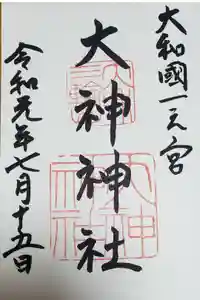 大和國一之宮
大神神社
令和元年七月十五日